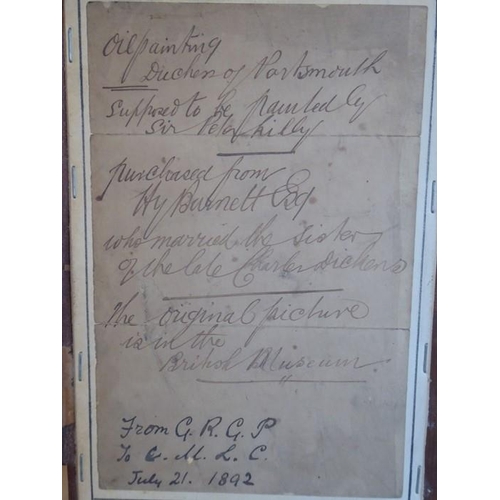 Oil painting
Duchess of Portsmouth
Supposed to be painted by
Sir Peter Lilly
purchased from
Hy Burnett Esq
who married the Sister
of the late Charles Dickens
The original picture
is in the
British Museum.
From G. R. G. P
To G. M. L. C.
July 21. 1892